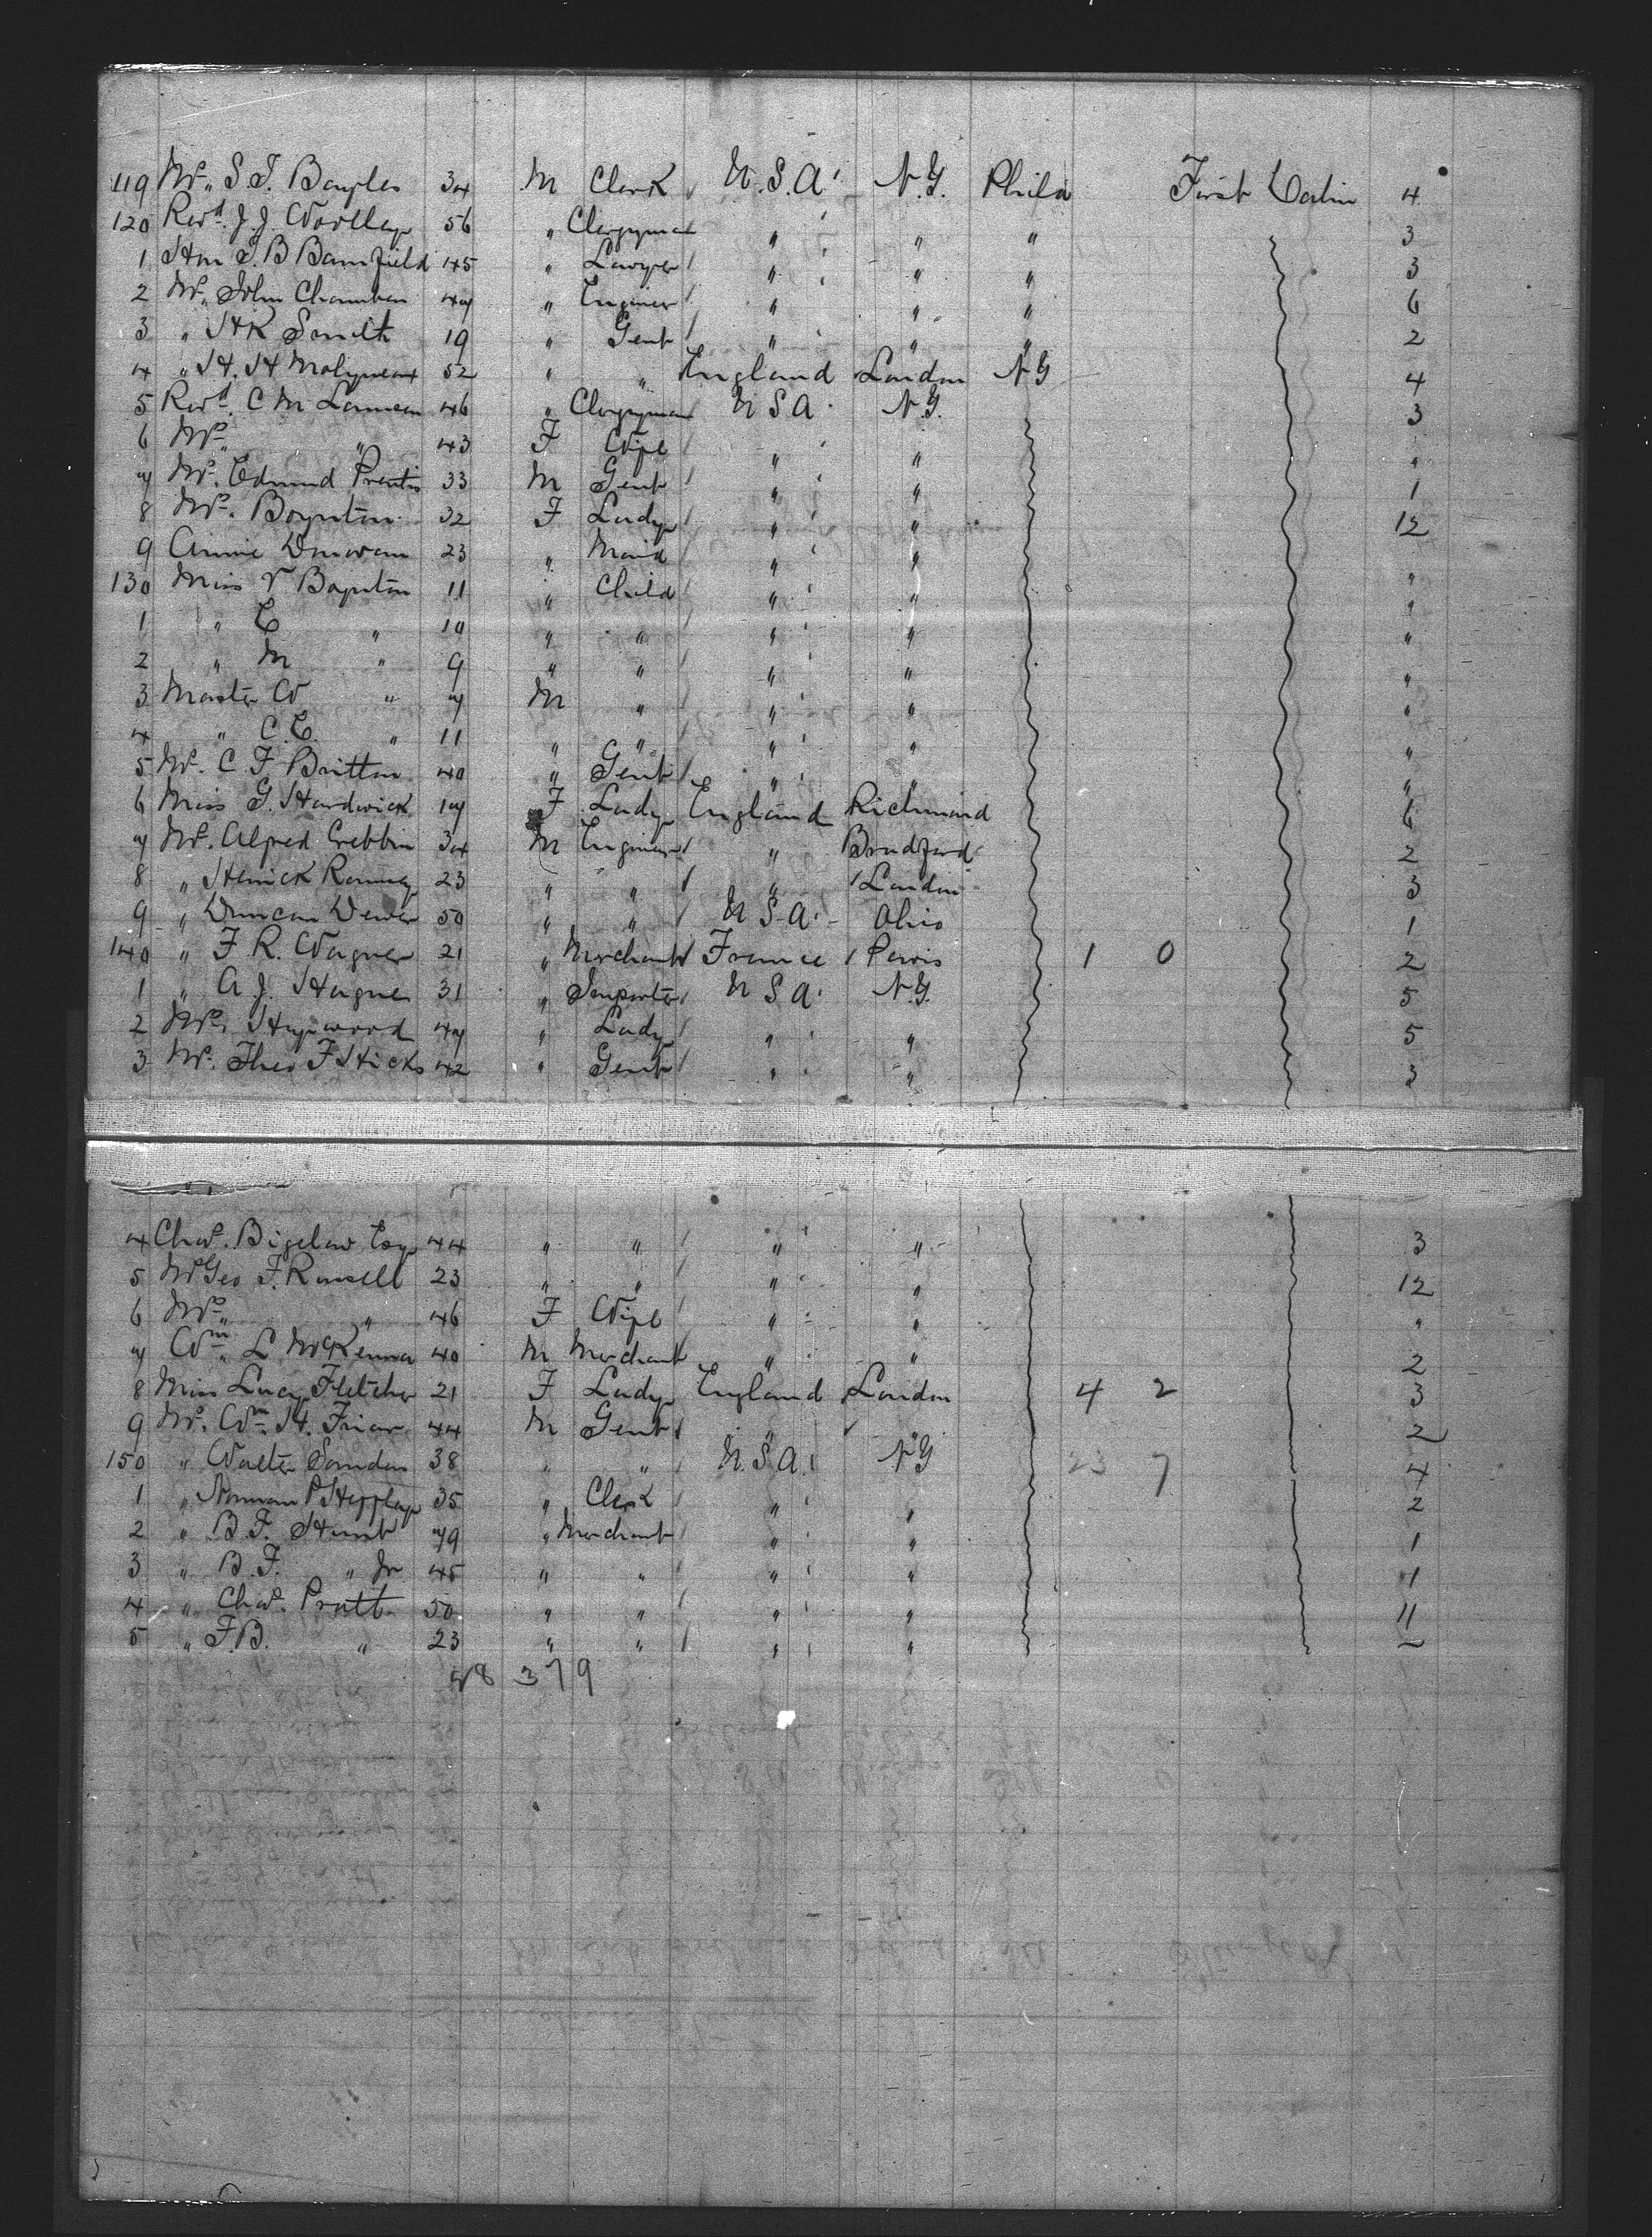 119 Mr. S. T. Bayles 34 M Clerk U.S.A. N.Y. Phila First Cabin 4
120 Revd. J. J. 56 " Clergyman " " " 3
1 Hon S. B Bamfield 45 " Lawyer " " " 3
2 Mr. John Chambers 47 " Enginer " " " 6
3 " H K Smith 19 " Gent " " " 2
4 " H. H Molyneaux 52 " " England London N Y 4
5 Revd. C M 46 " Clergyman U S A N.Y. 3
6 Mrs. " 43 F Wife " " "
7 Mr. Edmund Prentis 33 M Gent " " 1
8 Mrs. Boynton 32 F Lady " " 12
9 Annie Donovan 23 " Maid " " "
130 Miss V Boynton 11 " Child " " "
1 " E " 10 " " " " "
2 " M " 9 " " " " "
3 Master W " 7 M " " " "
4 " C. E. " 11 " " " " "
5 Mr. C F Britton 40 " Gent " " "
6 Miss G. Hardwick 17 F Lady England Richmond 6
7 Mr. Alfred Crebbin 34 M Enginer " Bradford 2
8 " Henick Ramsey 23 " " " London 3
9 " Duncan Dewer 50 " " U S A Ohio 1
140 " F R. Wagner 21 " Merchant France Paris 1 0 2
1 " A J. Hague 31 " Importer U S A N.Y. 5
2 Mrs. Heywood 47 " Lady " " 5
3 Mr. Theo F Hicks 42 " Gent " " 3
4 Chas. Bigelow Esq 44 " " " " 3
5 Mr Geo F. Russell 23 " " " " 12
6 Mrs. " 46 F Wife " " "
7 Wm. L McKenna 40 M Merchant " " 2
8 Miss Lucy Fletcher 21 F Lady England London 4 2 3
9 Mr. Wm. H. Friar 44 M Gent " " 2
150 " Walter Sandon 38 " " U.S.A. N Y 23 7 4
1 " Norman P Heffley 35 " Clerk " " 2
2 " B. F. Hunt 79 " Merchant " " 1
3 " B. F. " Jr 45 " " " " 1
4 " Chas. Pratt 50 " " " " 11
5 " F. B. " 23 " " " "
48 379